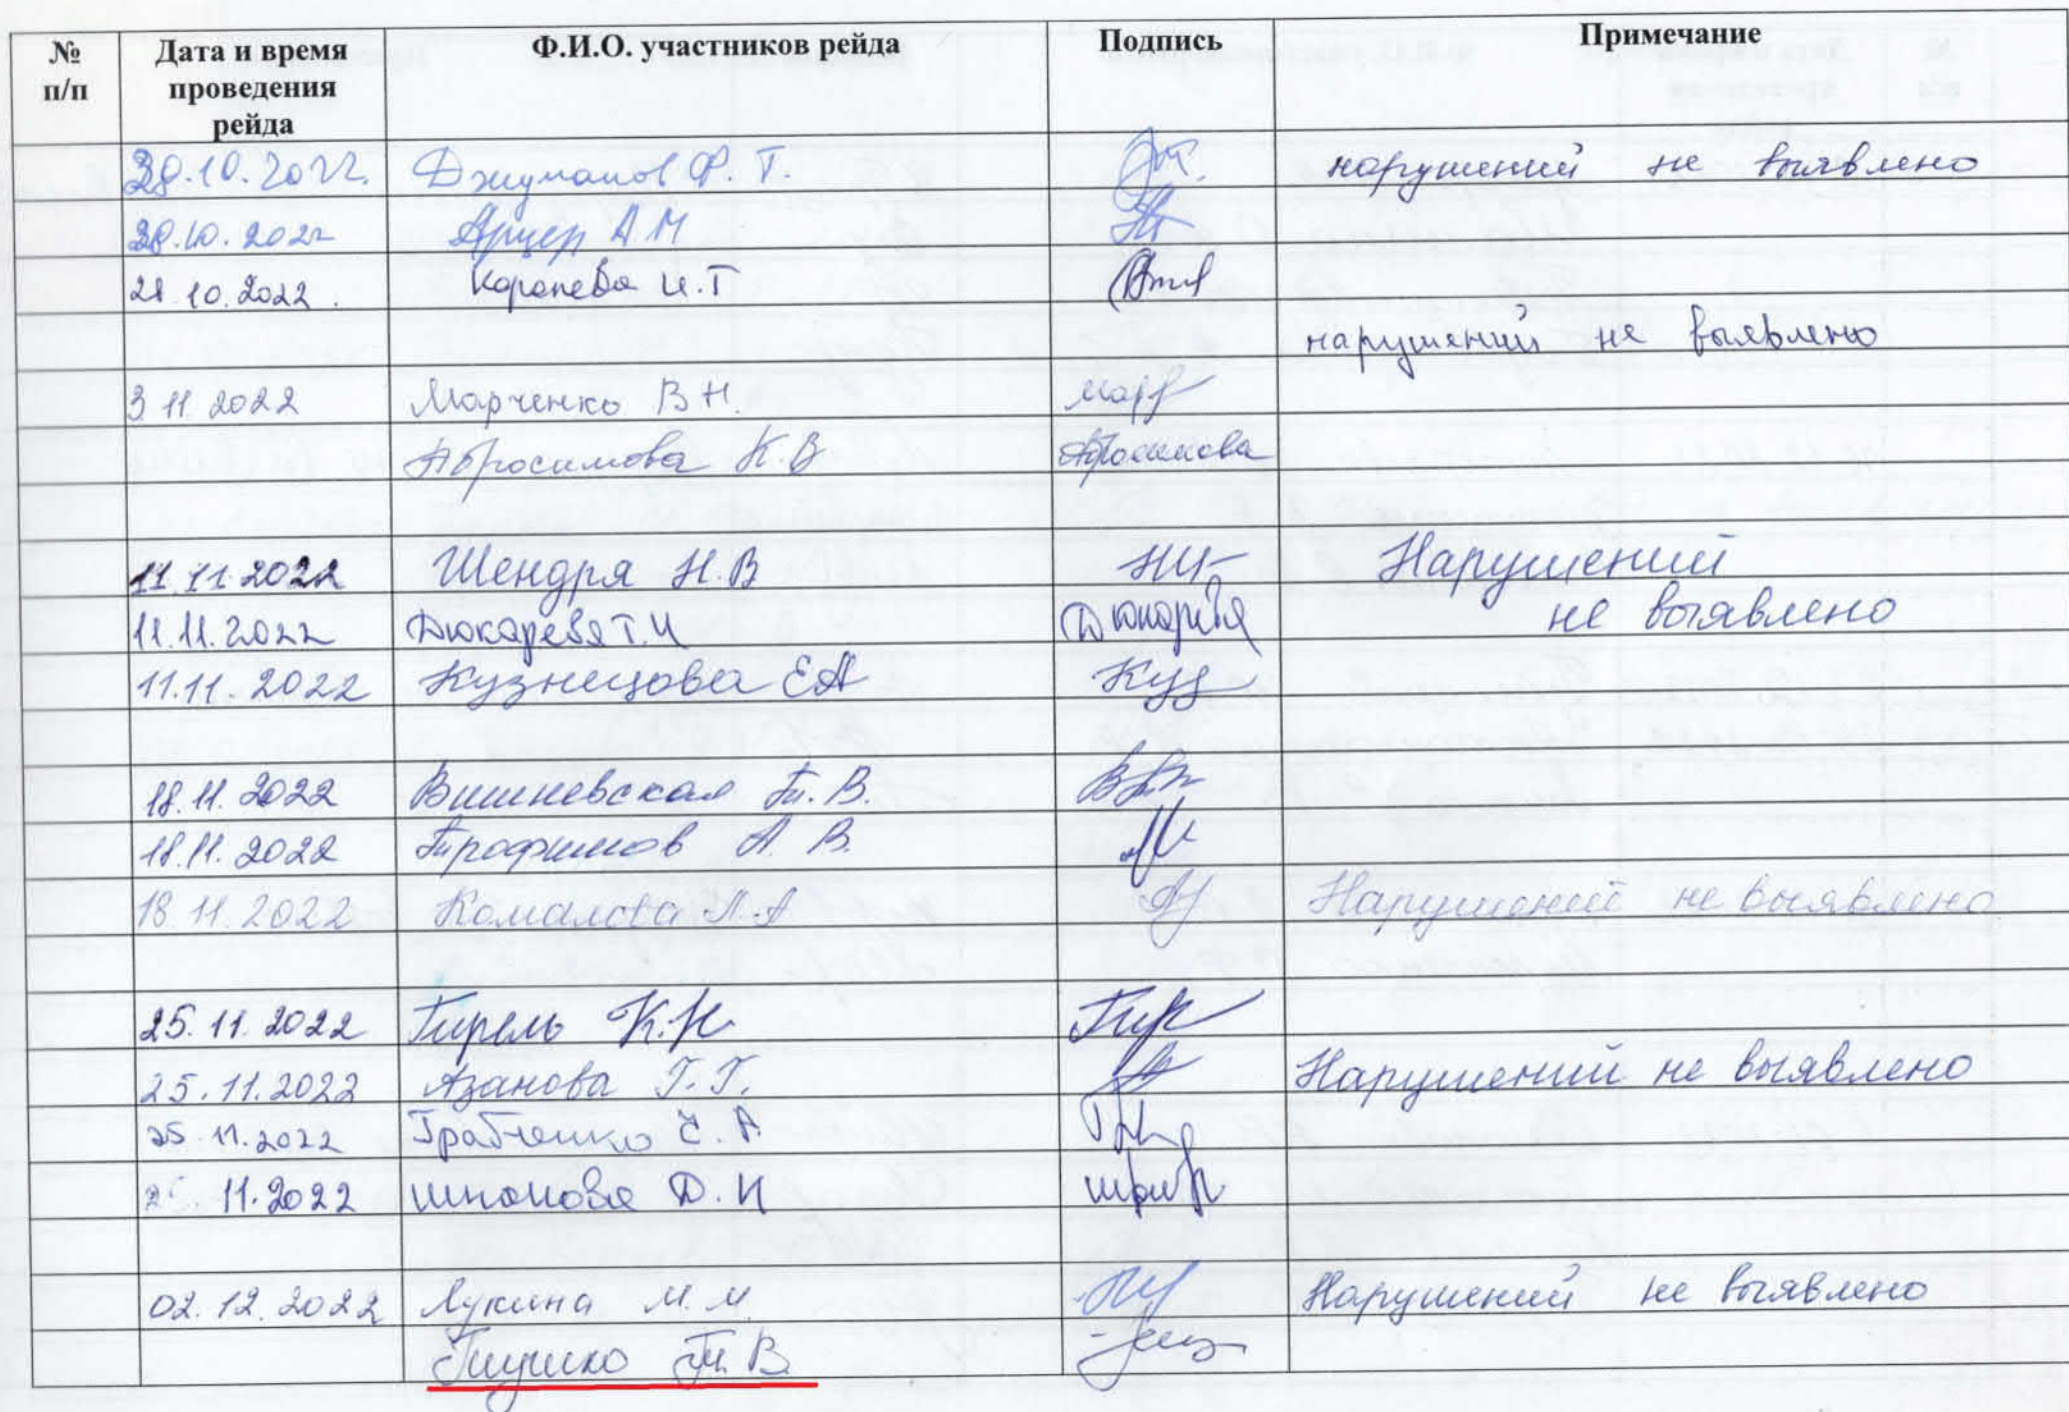 № п/п Дата и время проведения рейда Ф.И.О. участников рейда Подпись Примечание
28.10.2022. Джуманов Ф. Т. нарушений не выявлено
28.10.2022 Арцер А.М
28.10.2022. Каропева И.Т
нарушений не выявлено
3 11 2022 Марченко В Н. Мар
Абросимова К.В Абросимова
11.11.2022 Шендря Н.В НШ Нарушений
11.11.2022 Дюкарева Т.И Дюкарева не выявлено
11.11.2022 Кузнецова ЕА Куз
18.11.2022 Вишневская Т. В.
18.11.2022 Трофимов А. В.
18.11.2022 Комалова Л.А Нарушений не выявлено
25.11.2022 Гирель К.Н Гир
25.11.2022 Азанова Г.Г. Нарушений не выявлено
25.11.2022 Грабченко Е.А.
11.2022 Шпакова Д.И
02.12.2022 Лукина М.М. Нарушений не выявлено
Т.В.